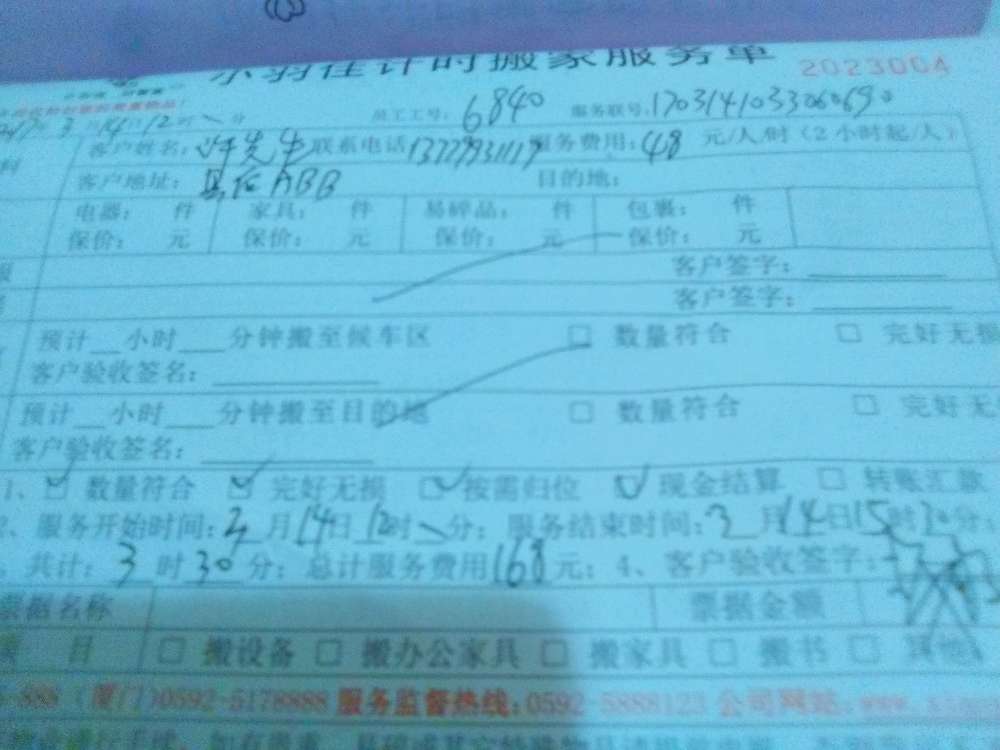 小羽佳计时搬家服务单 2023004
3月14日12时 分 员工工号: 6840 服务联号:
客户姓名: 许先生 联系电话 服务费用: 48 元/人/时(2小时起/人)
客户地址: ABB 目的地:
电器: 件 家具: 件 易碎品: 件 包裹: 件
保价: 元 保价: 元 保价: 元 保价: 元
客户签字:
客户签字:
预计__小时___分钟搬至候车区 □ 数量符合 □ 完好无损
客户验收签名:
预计__小时___分钟搬至目的地 □ 数量符合 □ 完好无
客户验收签名:
1、☑ 数量符合 ☑ 完好无损 ☑ 按需归位 ☑ 现金结算 □ 转账汇款
2、服务开始时间: 3月14日12时 分; 服务结束时间: 3月14日15时30分;
共计: 3时30分; 总计服务费用168元; 4、客户验收签字:
票据名称 票据金额
项 目 □ 搬设备 □ 搬办公家具 □ 搬家具 □ 搬书 □ 其他
-888 (厦门)0592-5178888 服务监督热线:0592-5888123 公司网址: